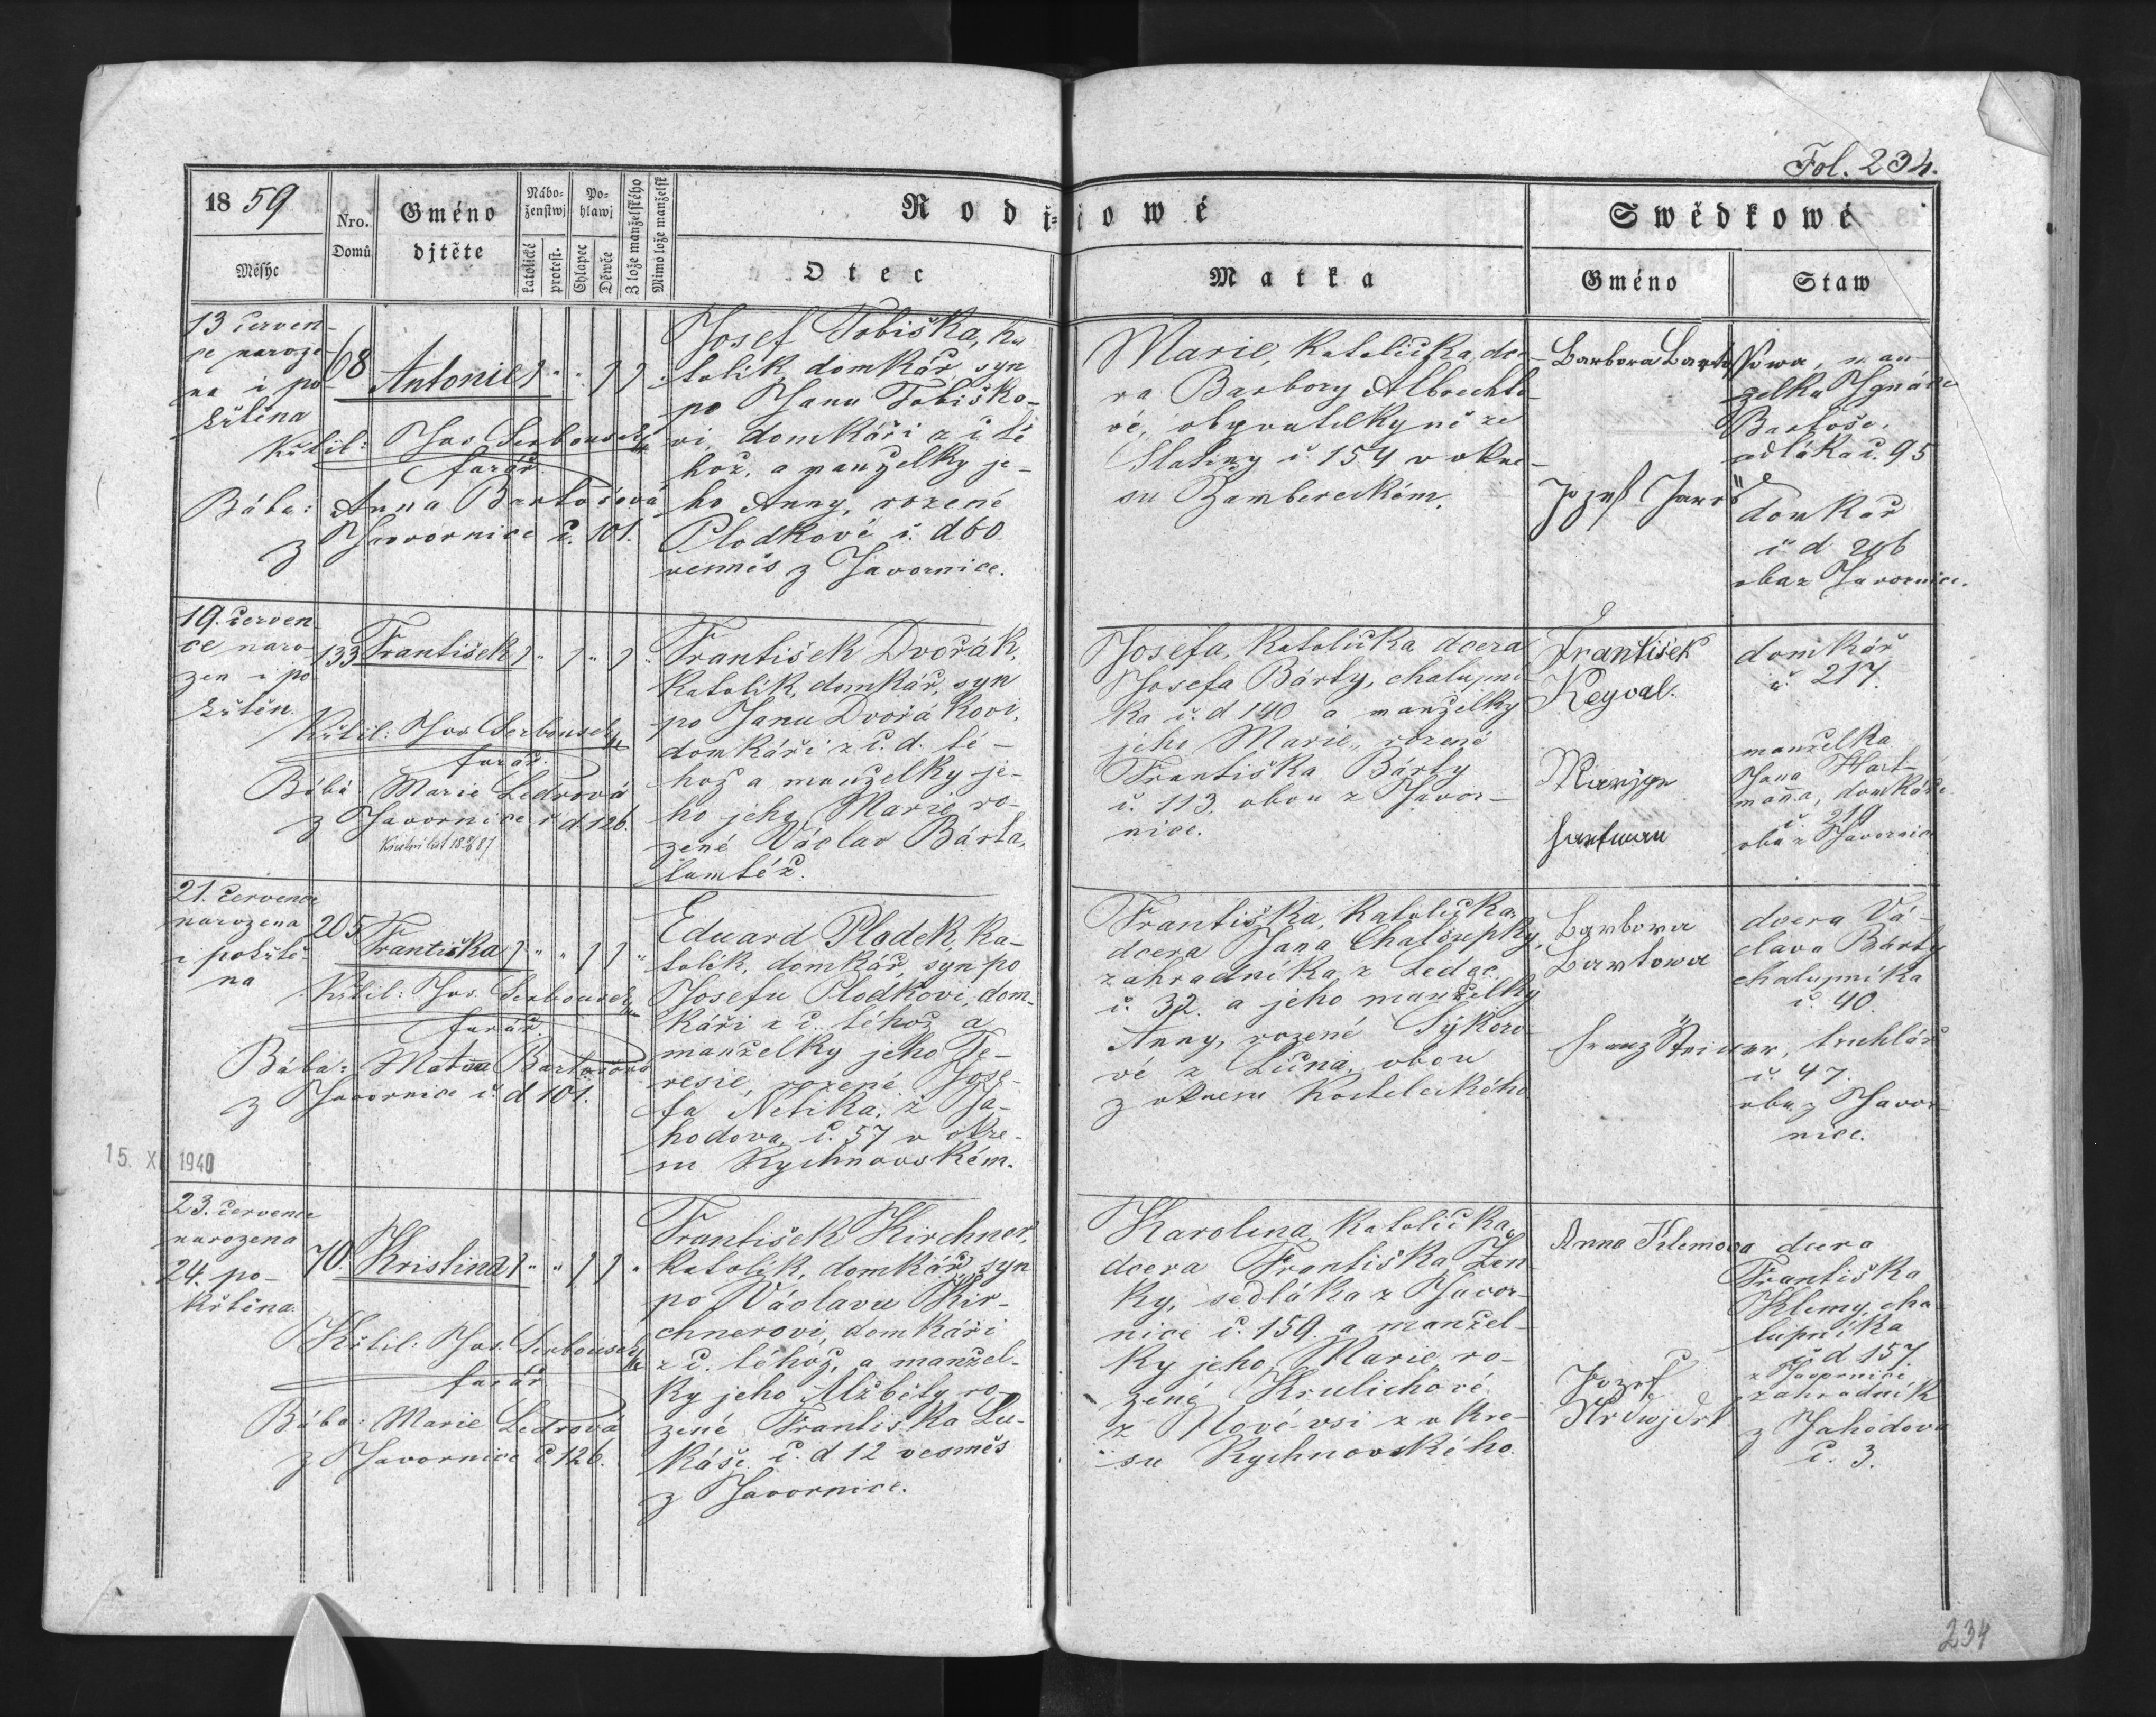 Fol. 234.
1859
Nro. Domů
Gméno djtěte
Nábo=
ženstwj
Po=
hlawj
katolické
protest.
Chlapec
Děwče
Z lože manželského
Mimo lože manželsk
Rodi=čowé
Swědkowé
Měsýc
Otec
Matka
Gméno
Staw
13 červen-
ce naroze-
na i po
křtěna
68
Antonie
Křtil: Jos. Serbousek
farář.
Bába: Anna Bartošová
z Javornice č. 101.
Josef Tobiška, ka
tolík, domkář, syn
po Janu Tobiško-
vi domkáři z č té
hož, a manželky je-
ho Anny, rozené
Plodkové č. d 60
vesměs z Javornice.
Marie, katolička, dce-
ra Barbory Albrechto-
vé, obyvatelkyně ze
Slatiny č 154 v okre-
su Žambereckém.
Barbora Bartossowa, man
želka Ignáce
Bartoše,
sedláka č. 95
Jozef
domkář
č d 206
oba z Javornice.
19. červen-
ce naro-
zen i po
křtěn.
133
František
Křtil: Jos Serbousek
farář.
Bába: Marie Ledrová
z Javornice č d 126.
František Dvořák,
katolík, domkář, syn
po Janu Dvořákovi,
domkáři z č. d. té-
hož a manželky je-
ho jeho Marie, ro-
zené Václav Bárta,
tamtéž.
Josefa, katolička dcera
Josefa Bárty, chalupní-
ka č. d 140 a manželky
jeho Marie, rozené
Františka Bárty
č. 113. obou z Javor-
nice.
František
Keyval.
domkář
č. 217.
Hartman
manželka
Jana Hart-
manna, domkáře
č. 219
oba z Javornice
21. července
narozena
i pokřtě-
na
205
Františka
Křtil: Jos. Serbousek
farář.
Bába: Bartošova
z Javornice č. d 101.
Eduard Plodek, ka-
tolík, domkář, syn po
Josefu Plodkovi, dom-
káři z č. téhož a
manželky jeho Te-
resie, rozené Jose-
fa Netika, z Ja-
hodova, č. 57 v okre-
su Rychnovském.
Františka, katolička,
dcera Jana Chaloupky,
zahradníka z Ledec
č. 32. a jeho manželky
Anny, rozené Sýkoro-
vé z Lična, obou
z okresu Kosteleckého
Barbora
Bartowa
dcera Vá-
clava Bárty
chalupníka
č. 40.
Franz Steiner, truhlář
č. 47.
oba z Javor-
nice.
15. XI. 1940
23. července
narozena
24. po-
křtěna.
70.
Kristina
Křtil: Jos. Serbousek
farář
Bába: Marie Ledrová
z Javornice č 126.
František Kirchner,
katolík, domkář, syn
po Václavu Kir-
chnerovi, domkáři
z č. téhož, a manžel-
ky jeho Alžběty, ro-
zené Františka Lu-
káše, č. d 12 vesměs
z Javornice.
Karolina, katolička,
dcera Františka Žen-
ky, sedláka z Javor-
nice č. 159. a manžel-
ky jeho Marie, ro-
zené Krulichové
z Nové vsi z okre-
su Rychnovského.
Anna Klemova dcera
Františka
Klemy, cha
lupníka
č d 157.
z Javornice
Jozef
zahradník
z Jahodova
č. 3.
234